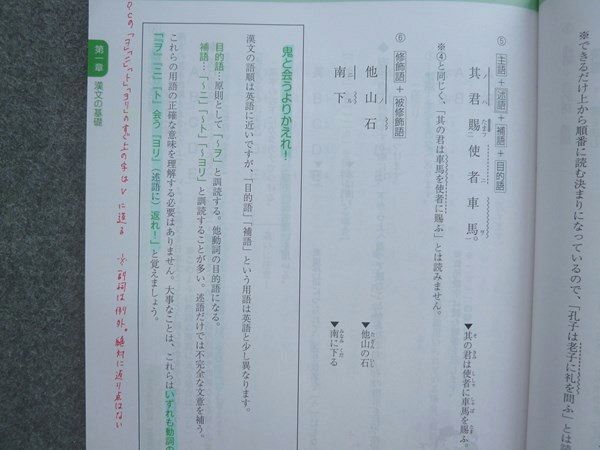 ※できるだけ上から順番に読む決まりになっているので、「孔子は老子に礼を問ふ」とは読
⑤ 主語＋述語＋補語＋目的語
其ノ君ハ賜たまフ使者ニ車馬ヲ。
▼其その君きみは使者ししゃに車馬しゃばを賜たまふ。
※④と同じく、「其の君は車馬を使者に賜ふ」とは読みません。
⑥ 修飾語＋被修飾語
他山ノ石
▼他山たざんの石いし
南ニ下ル
▼南みなみに下くだる
鬼と会うよりかえれ！
漢文の語順は英語に近いですが、「目的語」「補語」という用語は英語と少し異なります。
目的語…原則として「〜ヲ」と訓読する。他動詞の目的語になる。
補語…「〜ニ」「〜ト」「〜ヨリ」と訓読することが多い。述語だけでは不完全な文意を補う。
これらの用語の正確な意味を理解する必要はありません。大事なことは、これらはいずれも動詞の
「『ヲ』『ニ』『ト』会う『ヨリ』（述語に）返れ！」と覚えましょう。
第一章 漢文の基礎
の「ヲ」「ニ」「ト」「ヨリ」のすぐ上の字はVに返る ※副詞は例外。絶対に返り点はない